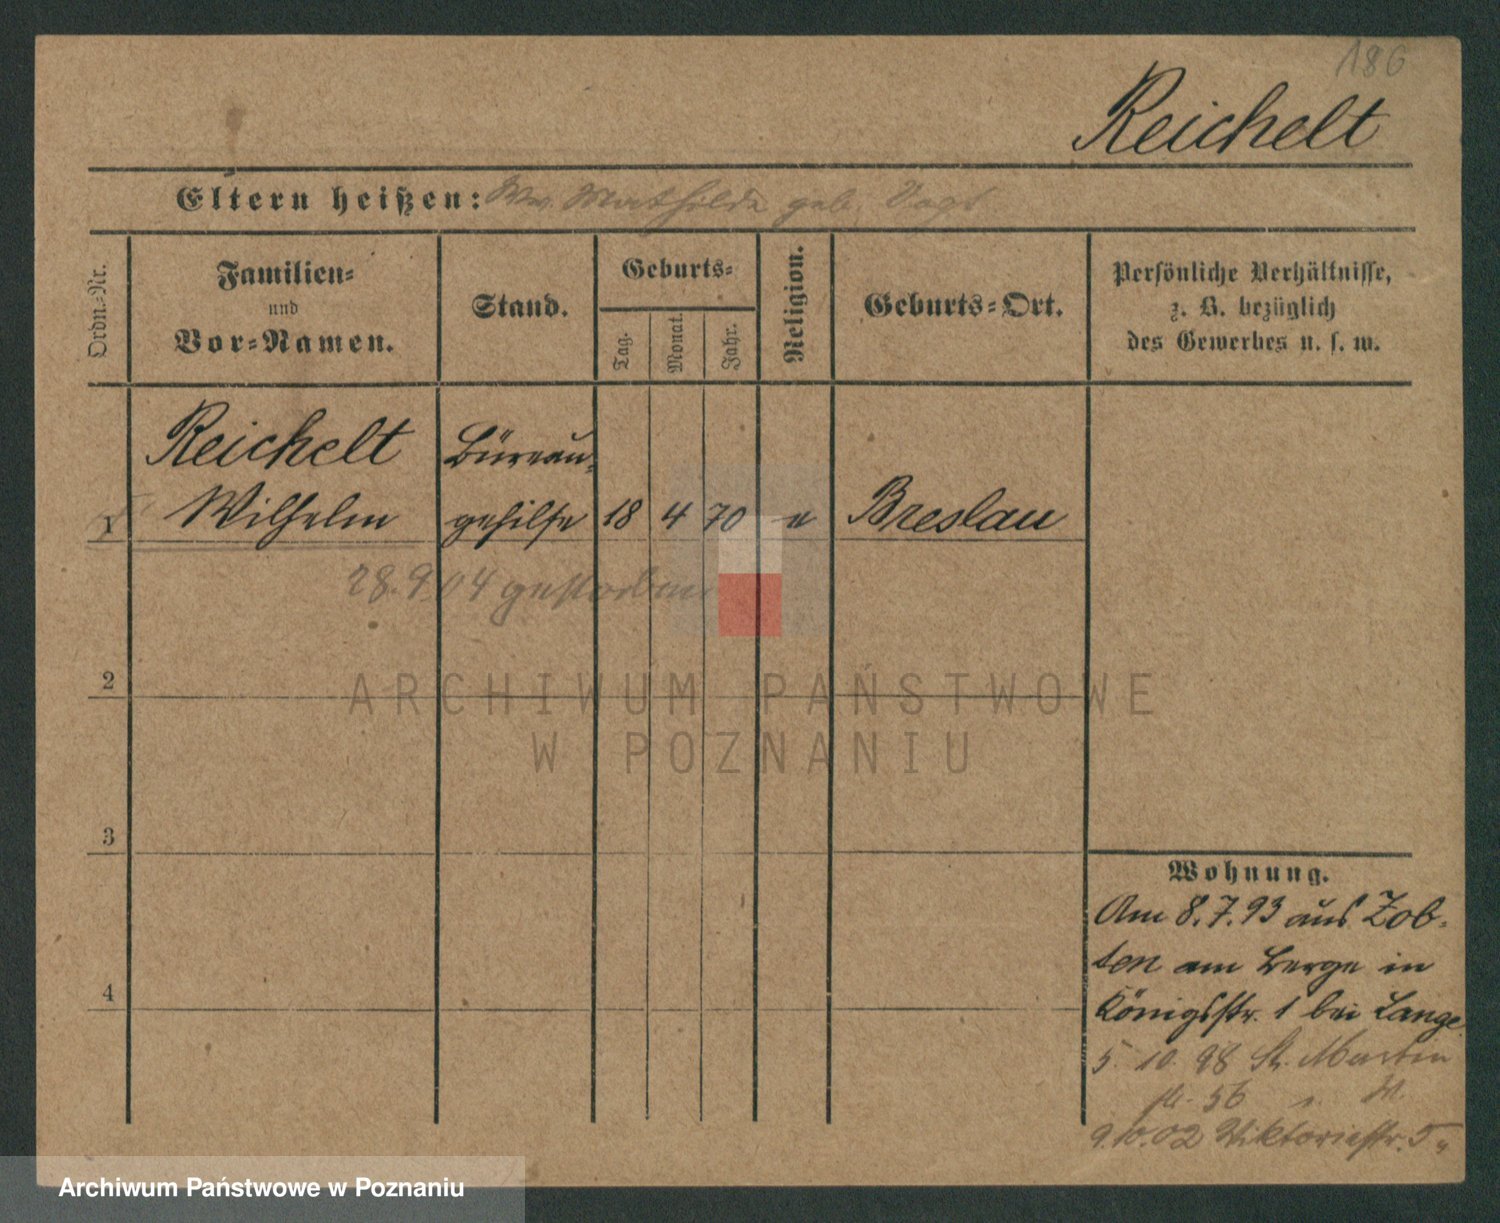 186
Reichelt
Eltern heißen: Ww. Mathilde geb. Vogt
Ordn.-Nr.
Familien-
und
Vor-Namen.
Stand.
Geburts-
Tag.
Monat.
Jahr.
Religion.
Geburts-Ort.
Persönliche Verhältnisse,
z. B. bezüglich
des Gewerbes u. s. w.
Reichelt Büreau-
1 Wilhelm gehilfe 18 4 70 e Breslau
28.9.04 gestorben
2
ARCHIWUM PAŃSTWOWE
W POZNANIU
3
4
Wohnung.
Am 8.7.93 aus Zob-
ten am Berge in
Königsstr. 1 bei Lange
5. 10. 98 St. Martin
56
9.10.02 Viktoriastr. 5
Archiwum Państwowe w Poznaniu